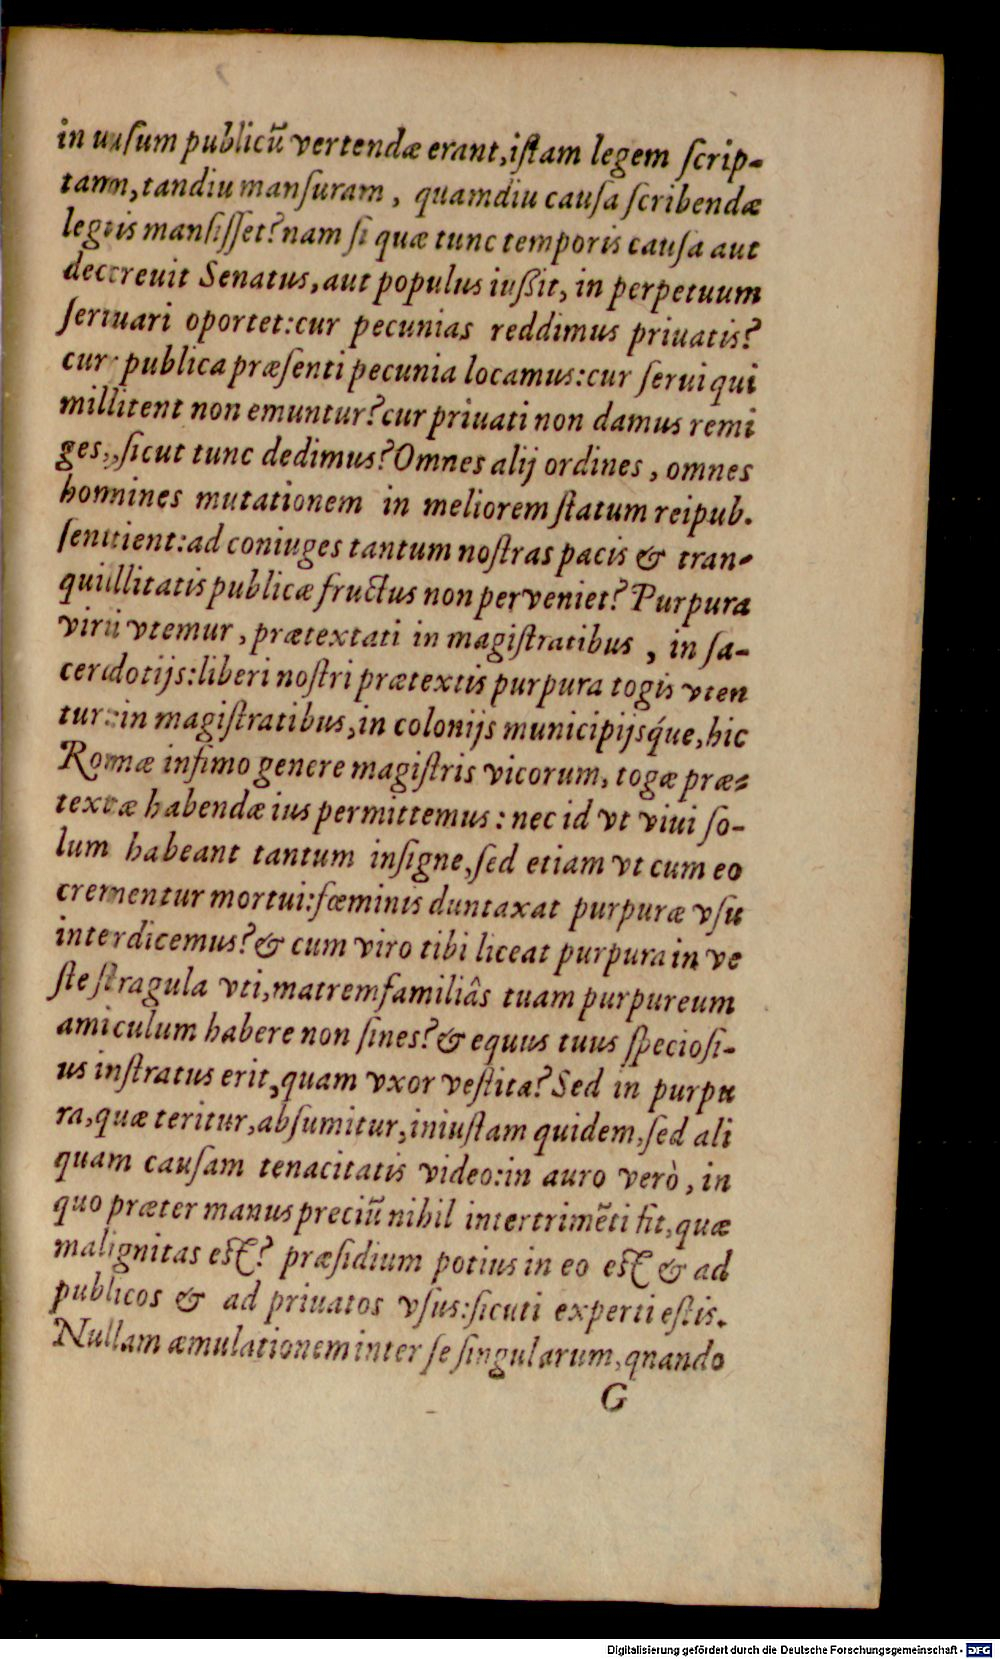 in uſum publicũ vertendæ erant, iſtam legem ſcrip-
tam, tandiu manſuram, quamdiu cauſa ſcribendæ
legis manſiſſet? nam ſi quæ tunc temporis cauſa aut
decreuit Senatus, aut populus iußit, in perpetuum
ſeruari oportet: cur pecunias reddimus priuatis?
cur publica præſenti pecunia locamus: cur ſerui qui
militent non emuntur? cur priuati non damus remi
ges, ſicut tunc dedimus? Omnes alij ordines, omnes
homines mutationem in meliorem ſtatum reipub.
ſentient: ad coniuges tantum noſtras pacis & tran-
quillitatis publicæ fructus non perveniet? Purpura
viri vtemur, prætextati in magiſtratibus, in ſa-
cerdotijs: liberi noſtri prætextis purpura togis vten
tur: in magiſtratibus, in colonijs municipijsq́ue, hic
Romæ infimo genere magiſtris vicorum, togæ præ-
textæ habendæ ius permittemus: nec id vt viui ſo-
lum habeant tantum inſigne, ſed etiam vt cum eo
crementur mortui: fœminis duntaxat purpuræ vſu
interdicemus? & cum viro tibi liceat purpura in ve
ſte ſtragula vti, matremfamiliâs tuam purpureum
amiculum habere non ſines? & equus tuus ſpecioſi-
us inſtratus erit, quam vxor veſtita? Sed in purpu
ra, quæ teritur, abſumitur, iniuſtam quidem, ſed ali
quam cauſam tenacitatis video: in auro verò, in
quo præter manus preciũ nihil intertrimẽti fit, quæ
malignitas eſt? præſidium potius in eo eſt & ad
publicos & ad priuatos vſus: ſicuti experti eſtis.
Nullam æmulationem inter ſe ſingularum, qnando
G
Digitalisierung gefördert durch die Deutsche Forschungsgemeinschaft - DFG